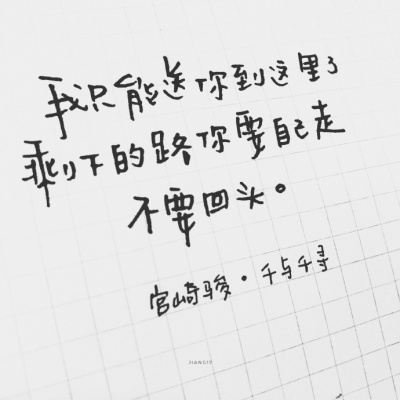 我只能送你到这里了
剩下的路你要自己走
不要回头。
宫崎骏·千与千寻
JIANGIT